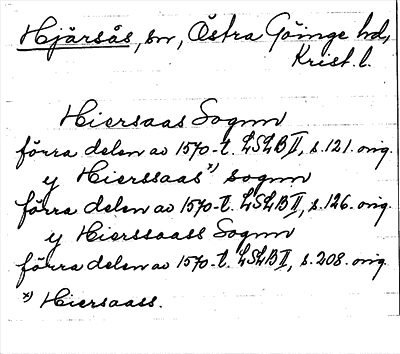 Hjärsås, sn, Östra Göinge hd,
Krist. l.
Hiersaas Sognn
förra delen av 1570-t. LSLB II, s. 121. orig.
y Hierssaas *) sognn
förra delen av 1570-t. LSLB II, s. 126. orig.
y Hierssaass Sognn
förra delen av 1570-t. LSLB II, s. 208. orig.
*) Hiersaass.